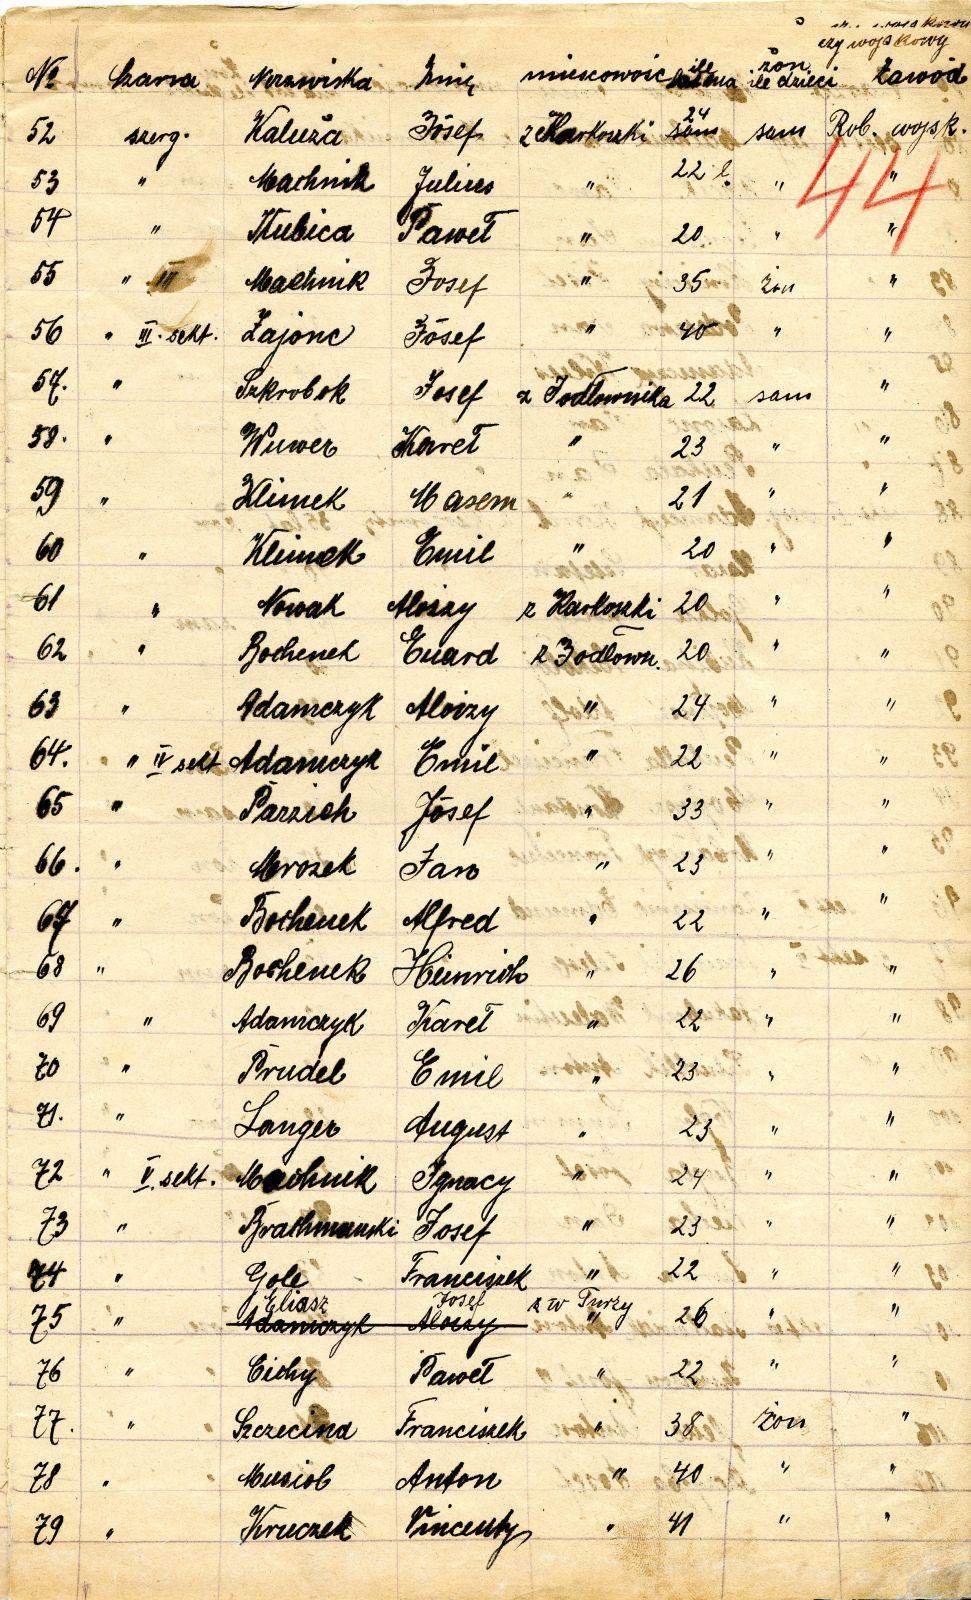 czy wojskowy
№ Szarża Nazwiska Imię miejscowość ile lat ma żon. ile dzieci Zawód
52 szerg. Kaluża Józef z Karkoszki 24 sam Rob. wojsk.
44
53 " Machnik Julius " 22 l. " "
54 " Kubica Paweł " 20 " "
55 " III Machnik Josef " 35 żon "
56 " III. sekt. Zajonc Józef " 40 " "
57. " Szkrobok Josef z Jodłownika 22 sam "
58. " Wuwer Kareł " 23 " "
59 " Klimek Masem " 21 " "
60 " Klimek Emil " 20 " "
61 " Nowak Aloizy z Karkoszki 20 " "
62 " Bochenek Euard z Jodłown. 20 " "
63 " Adamczyk Aloizy " 24 " "
64. " IV sekt Adamczyk Emil " 22 " "
65 " Parzich Józef " 33 " "
66. " Mrozek Jan " 23 " "
67 " Bochenek Alfred " 22 " "
68 " Bochenek Heinrich " 26 " "
69 " Adamczyk Kareł " 22 " "
70 " Prudel Emil " 23 " "
71. " Langer August " 23 " "
72 " V. sekt. Machnik Ignacy " 24 " "
73 " Brachmanski Josef " 23 " "
74 " Gole Franciszek " 22 " "
Eliasz Josef z w Turzy
75 " Adamczyk Aloizy " 26 " "
76 " Cichy Paweł " 22 " "
77. " Szczecina Franciszek " 38 żon "
78 " Musiol Anton " 40 " "
79 " Kruczek Vincenty " 41 " "